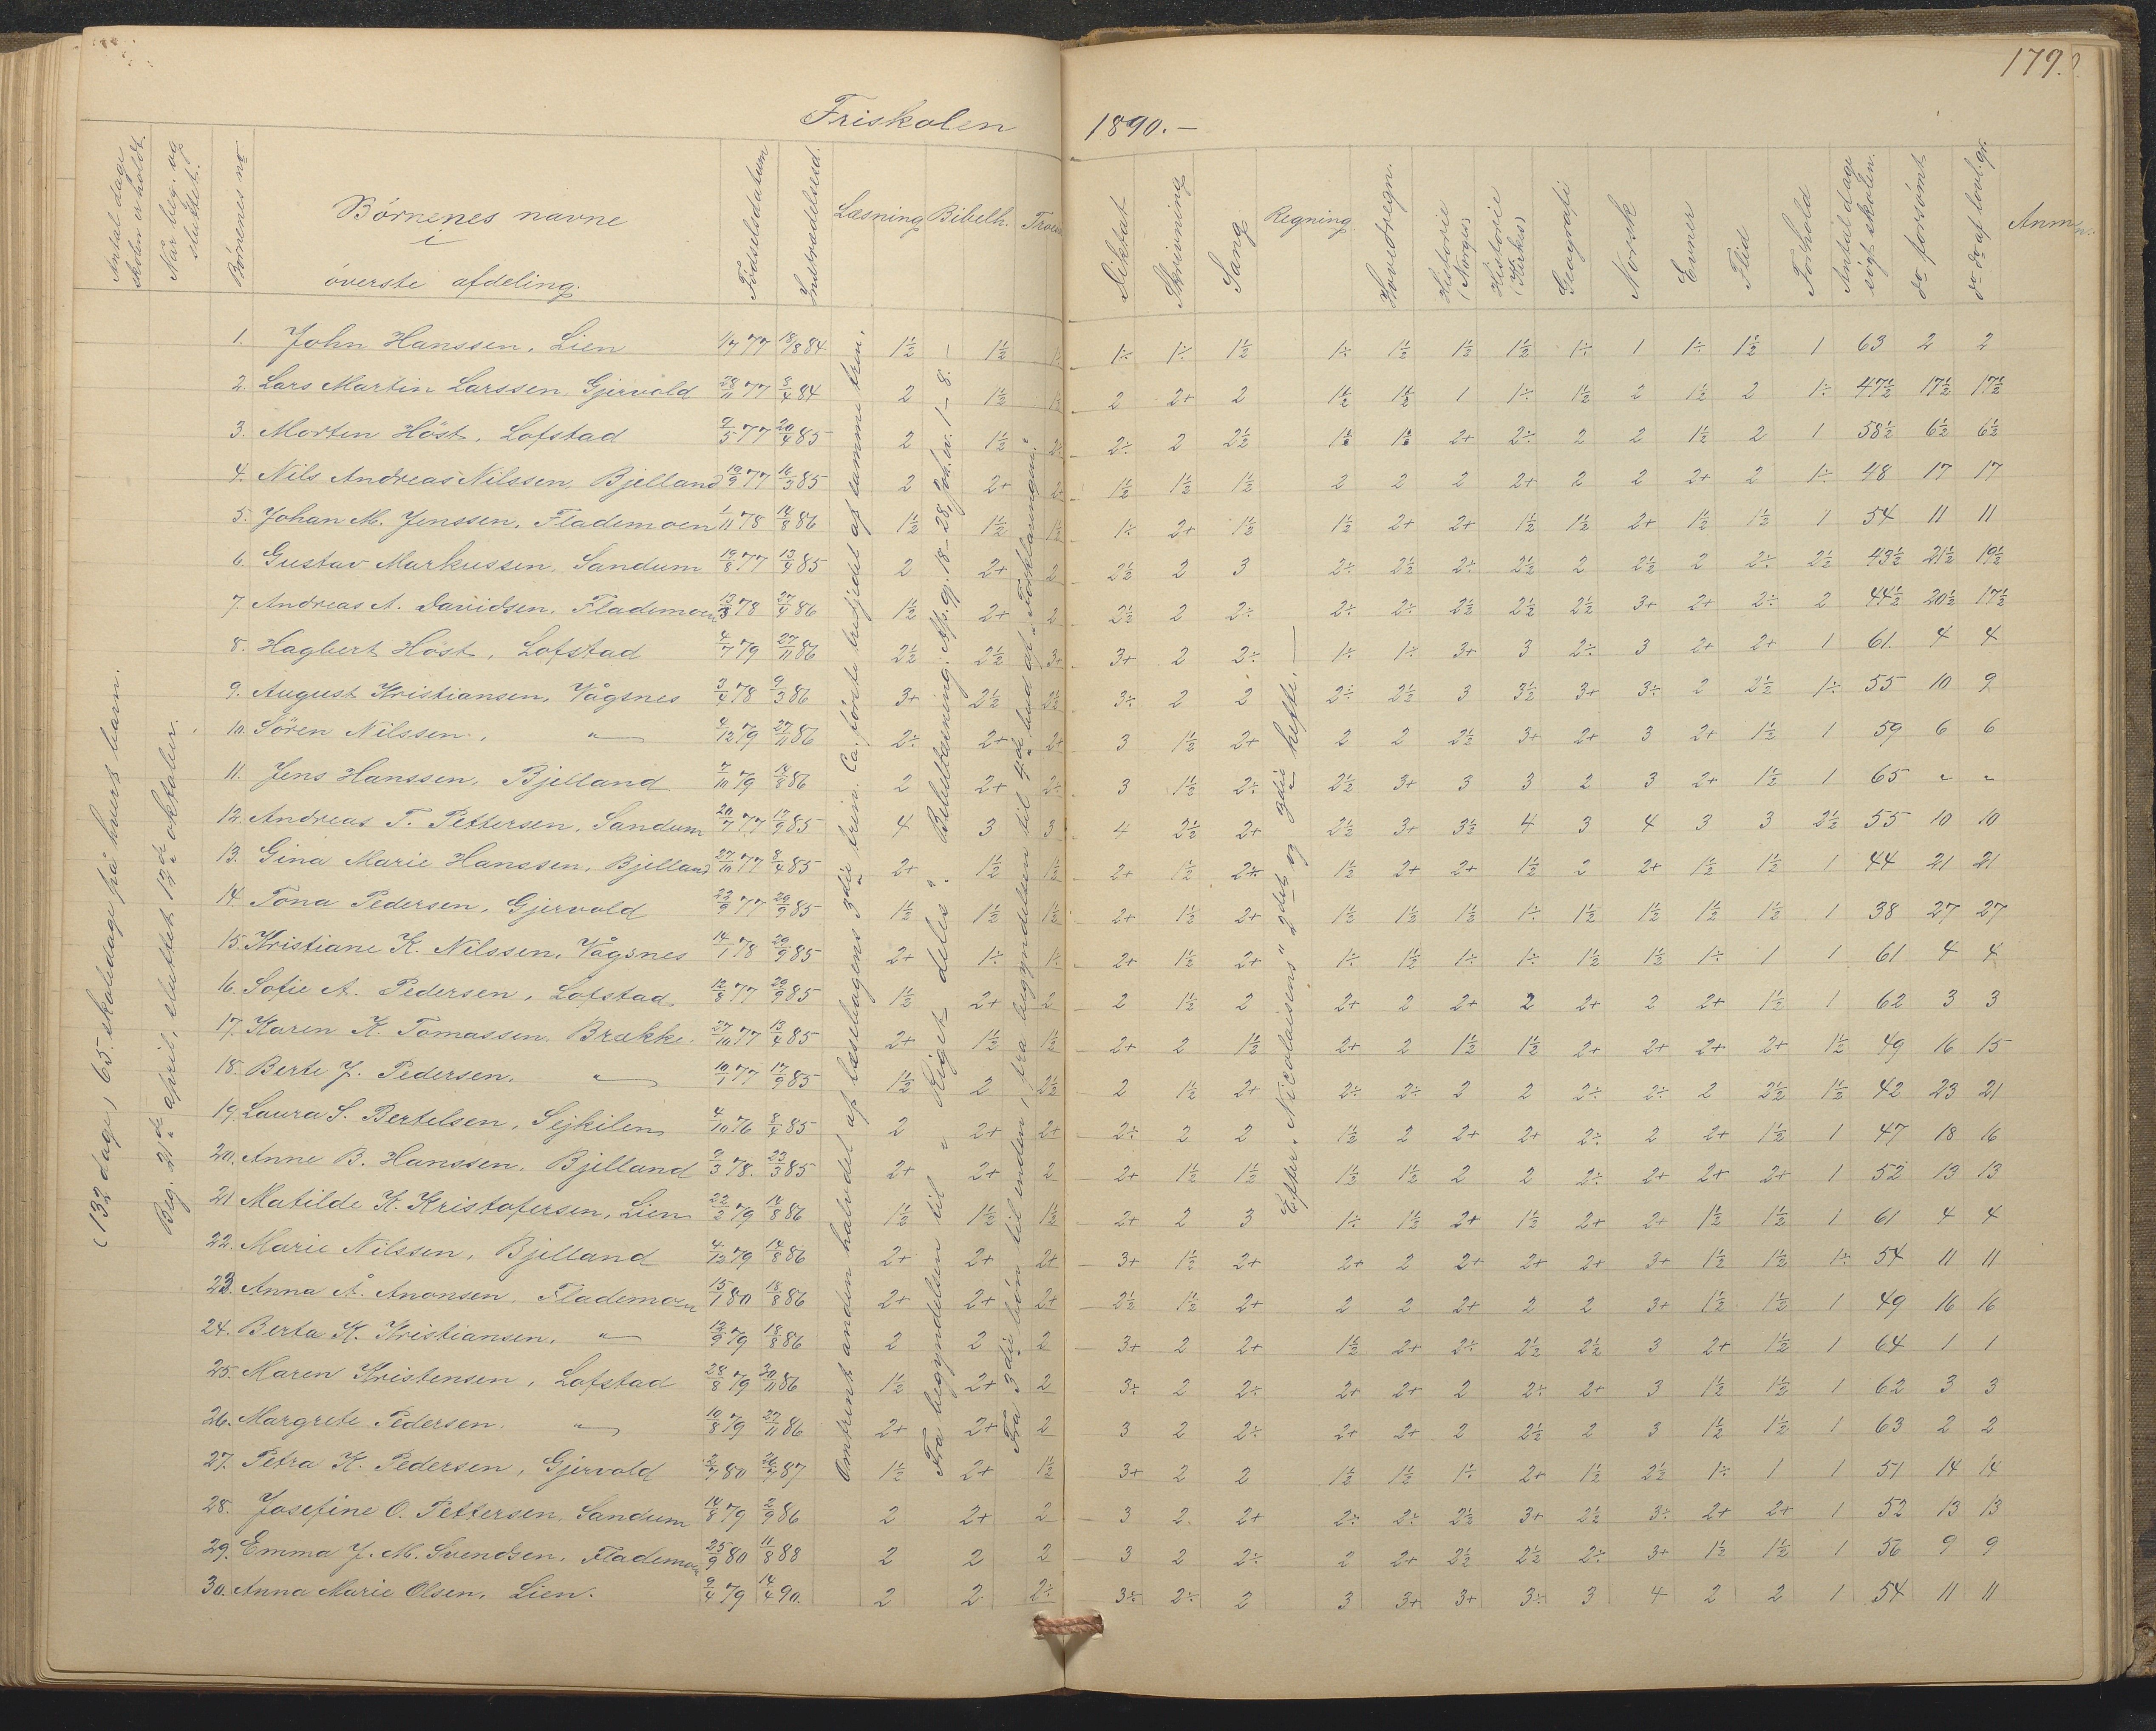 179.
Friskolen 1890.—
Antal dage skolen er holdt.
Når beg. og sluttet.
Börnenes no
Börnenes navne i överste afdeling.
Födselsdatum
Indtrædelsesd.
Læsning
Bibelh.
Troesl
Diktat
Skrivning
Sang
Regning
Hovedregn.
Historie (Norges)
Historie (Kirkes)
Geografi
Norsk
Evner
Flid
Forhold
Antal dage sögt skolen.
do forsömt
do do af lovl. gr.
Anm
(132 dage) 65 skoledage på hvert barn.
Beg. 21de april, sluttet 13de oktober.
Omtrent anden halvdel af læsebogens 3die trin. Ca. förste trediedel af samme trin.
Fra begyndelsen til „Riget deles". Bibeltræning: Ap. gj. 18–28, Joh. ev. 1–8.
Fra 3die bön til enden, fra begyndelsen til 4de bud af „Forklaringen".
Efter „Nicolaisens" 2det og 3die hefte.—
1. John Hanssen, Lien 1/7 77 18/8 84 1½ 1½ 1÷ 1÷ 1÷ 1½ 1÷ 1½ 1½ 1½ 1÷ 1 1÷ 1½ 1 63 2 2
2. Lars Martin Larssen, Gjervold 28/11 77 3/4 84 2 1½ 1½ 2 2+ 2 1½ 1½ 1 1÷ 1½ 2 1½ 2 1÷ 47½ 17½ 17½
3. Morten Höst, Lofstad 2/5 77 20/4 85 2 1½ 2÷ 2÷ 2 2½ 1½ 1½ 2+ 2÷ 2 2 1½ 2 1 58½ 6½ 6½
4. Nils Andreas Nilssen, Bjelland 19/9 77 16/3 85 2 2+ 2+ 1½ 1½ 1½ 2 2 2 2+ 2 2 2+ 2 1÷ 48 17 17
5. Johan M. Jenssen, Flademoen 1/11 78 14/8 86 1½ 1½ 1½ 1÷ 2+ 1½ 1½ 2+ 2+ 1½ 1½ 2+ 1½ 1½ 1 54 11 11
6. Gustav Markussen, Sandum 19/8 77 13/4 85 2 2+ 2 2½ 2 3 2÷ 2½ 2÷ 2½ 2 2½ 2 2÷ 2½ 43½ 21½ 19½
7. Andreas A. Davidsen, Flademoen 13/3 78 27/4 86 1½ 2+ 2 2½ 2 2÷ 2÷ 2÷ 2½ 2½ 2½ 3+ 2+ 2÷ 2 44½ 20½ 17½
8. Hagbert Höst, Lofstad 4/7 79 27/11 86 2½ 2½ 3+ 3+ 2 2÷ 1÷ 1÷ 3+ 3 2÷ 3 2+ 2+ 1 61 4 4
9. August Kristiansen, Vågsnes 3/4 78 9/3 86 3+ 2½ 2½ 3÷ 2 2 2÷ 2½ 3 3½ 3+ 3÷ 2 2½ 1÷ 55 10 9
10. Sören Nilssen, „ 4/12 79 27/11 86 2÷ 2+ 2+ 3 1½ 2+ 2 2 2½ 3+ 2+ 3 2+ 1½ 1 59 6 6
11. Jens Hanssen, Bjelland 7/10 79 14/8 86 2 2+ 2÷ 3 1½ 2÷ 2½ 3+ 3 3 2 3 2+ 1½ 1 65 „ „
12. Andreas T. Pettersen, Sandum 20/7 77 17/9 85 4 3 3 4 2½ 2+ 2½ 3+ 3½ 4 3 4 3 3 2½ 55 10 10
13. Gina Marie Hanssen, Bjelland 27/10 77 8/4 85 2+ 1½ 1½ 2+ 1½ 2÷ 1½ 2+ 2+ 1½ 2 2+ 1½ 1½ 1 44 21 21
14. Tona Pedersen, Gjervold 22/9 77 29/9 85 1½ 1½ 1½ 2+ 1½ 2+ 1½ 1½ 1½ 1÷ 1½ 1½ 1½ 1½ 1 38 27 27
15. Kristiane K. Nilssen, Vågsnes 14/1 78 29/9 85 2+ 1÷ 1÷ 2+ 1½ 2+ 1÷ 1½ 1÷ 1÷ 1½ 1½ 1÷ 1 1 61 4 4
16. Sofie A. Pedersen, Lofstad, 12/8 77 29/9 85 1½ 2+ 2 2 1½ 2 2+ 2 2+ 2 2+ 2 2+ 1½ 1 62 3 3
17. Karen K. Tomassen, Brække. 27/10 77 13/4 85 2+ 1½ 1½ 2+ 2 1½ 2+ 2 1½ 1½ 2+ 2+ 2+ 2+ 1½ 49 16 15
18. Berte J. Pedersen, „ 10/1 77 17/9 85 1½ 2 2½ 2 1½ 2+ 2÷ 2÷ 2 2 2÷ 2÷ 2 2½ 1½ 42 23 21
19. Laura S. Bertelsen, Sejkilen 4/10 76 8/4 85 2 2+ 2+ 2÷ 2 2 1½ 2 2+ 2+ 2÷ 2 2+ 1½ 1 47 18 16
20. Anne B. Hanssen, Bjelland 9/3 78. 23/3 85 2+ 2+ 2 2+ 1½ 1½ 1½ 1½ 2 2 2÷ 2+ 2+ 2+ 1 52 13 13
21 Matilde K. Kristofersen, Lien 22/2 79 14/8 86 1½ 1½ 1½ 2+ 2 3 1÷ 1½ 2+ 1½ 2+ 2+ 1½ 1½ 1 61 4 4
22. Marie Nilssen, Bjelland 4/12 79 14/8 86 2+ 2+ 2+ 3+ 1½ 2+ 2+ 2 2+ 2+ 2+ 3+ 1½ 1½ 1÷ 54 11 11
23. Anna Å. Anonsen, Flademoen 15/1 80 18/8 86 2+ 2+ 2+ 2½ 1½ 2+ 2 2 2+ 2 2 3+ 1½ 1½ 1 49 16 16
24. Berta K. Kristiansen, „ 12/9 79 18/8 86 2 2 2 3+ 2 2+ 1½ 2+ 2÷ 2½ 2½ 3 2+ 1½ 1 64 1 1
25. Maren Kristensen, Lofstad 28/8 79 30/11 86 1½ 2+ 2 3÷ 2 2÷ 2+ 2+ 2 2÷ 2+ 3 1½ 1½ 1 62 3 3
26. Margrete Pedersen. „ 10/8 79 27/11 86 2+ 2+ 2 3 2 2÷ 2+ 2+ 2 2½ 2 3 1½ 1½ 1 63 2 2
27. Petra K. Pedersen, Gjervold 2/7 80 26/7 87 1½ 2+ 1½ 3+ 2 2 1½ 1½ 1÷ 2+ 1½ 2½ 1÷ 1 1 51 14 14
28. Josefine O. Pettersen, Sandum 14/8 79 2/9 86 2 2+ 2 3 2 2+ 2÷ 2÷ 2½ 3+ 2½ 3÷ 2+ 2+ 1 52 13 13
29. Emma J. M. Svendsen, Flademoen 25/9 80 11/8 88 2 2 2 3 2 2÷ 2 2+ 2½ 2½ 2÷ 3+ 1½ 1½ 1 56 9 9
30. Anna Marie Olsen, Lien. 9/4 79 14/4 90. 2 2 2÷ 3÷ 2÷ 2 3 3+ 3+ 3÷ 3 4 2 2 1 54 11 11